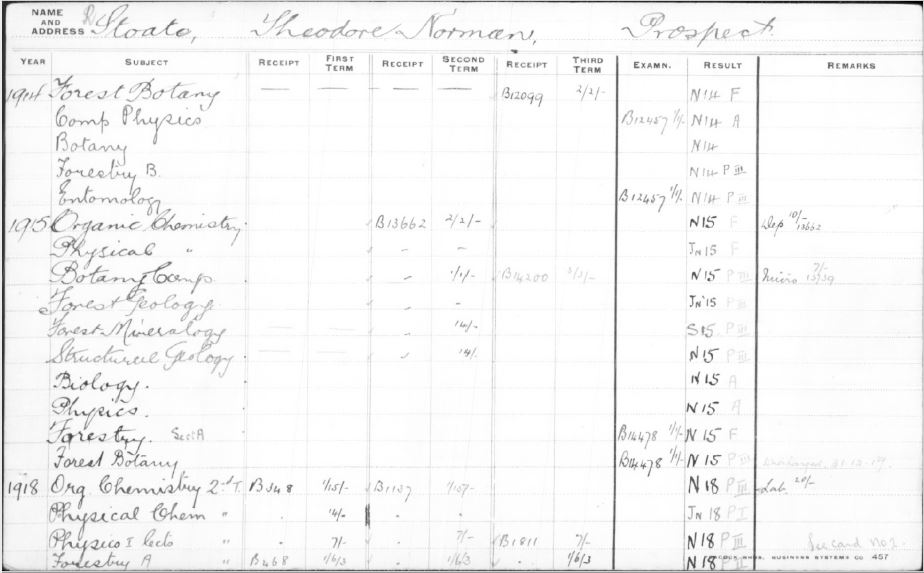 NAME AND ADDRESS Stoate, Theodore Norman, Prospect.
YEAR SUBJECT RECEIPT FIRST TERM RECEIPT SECOND TERM RECEIPT THIRD TERM EXAMN. RESULT REMARKS
1914 Forest Botany — — — — B12099 2/2/- N14 F
Comp Physics B12457 1/1/- N14 A
Botany N14
Forestry B. N14 P III
Entomology B12457 1/1/- N14 P III
1915 Organic Chemistry B13662 2/2/- N15 F Dep 10/- 13662
Physical " - - Jn 15 F
Botany Comp - 1/1/- B14200 N15 P III Micro 7/-
Forest Geology - - Jn 15 P III
Forest Mineralogy — — 14/- S15 P III
Structural Geology — — - 14/- N15 P III
Biology. N15 A
Physics. N15 A
Forestry. Sect A B14478 1/1/- N15 F
Forest Botany B14478 1/1/- N15 P III
1918 Org. Chemistry 2nd T. B348 1/15/- B1137 1/15/- N18 P III Lab. 20/-
Physical Chem " . 14/- . . Jn 18 P I
Physics I lects " . 7/- . 7/- B1811 7/- N18 P III See card no 2.
Forestry A " B468 1/6/3 . 1/6/3 . 1/6/3 N18 P III
BUSINESS SYSTEMS CO 457